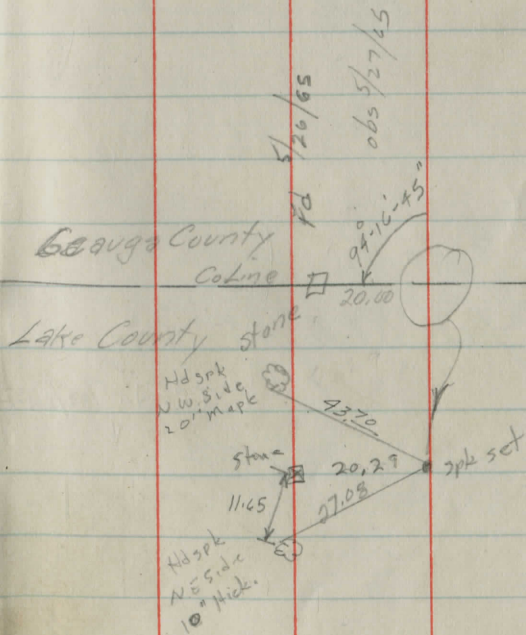 fd 5/26/65
obs 5/27/65
94°-16'-45"
Geauga County
Co Line
20.00
Lake County
stone
Hdspk
N.W. Side
20" Mapk
43.70
stone
20.29
spk set
11.65
27.08
Hdspk
N E Side
10" Hick.